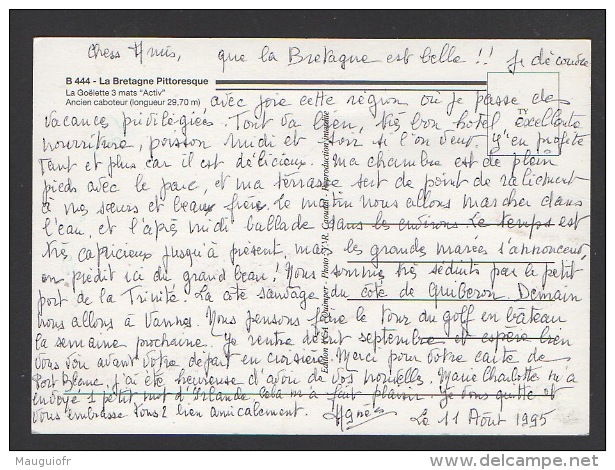 Chers Amis, que la Bretagne est belle !! Je découvre
B 444 - La Bretagne Pittoresque
La Goëlette 3 mats "Activ"
Ancien caboteur (longueur 29,70 m)
avec joie cette région où je passe des
vacances privilégiées. Tout va bien, très bon hôtel, excellente
nourriture, poisson midi et soir si l'on veut. J'en profite
tant et plus car il est délicieux. Ma chambre est de plein
pieds avec le parc, et ma terrasse sert de point de raliement
à mes sœurs et beau frère. Le matin nous allons marcher dans
l'eau, et l'après midi ballade dans les environs. Le temps est
très capricieux jusqu'à présent, mais les grandes marées s'annoncent,
on prédit ici du grand beau ! Nous sommes très séduits par le petit
port de la Trinité. La côte sauvage du côté de Quiberon. Demain
nous allons à Vannes. Nous pensons faire le tour du golf en bâteau
la semaine prochaine. Je rentre début septembre et espère bien
vous voir avant votre départ en croisière. Merci pour votre carte de
Port Blanc, j'ai été heureuse d'avoir de vos nouvelles. Marie Charlotte m'a
envoyé 1 petit mot d'Irlande cela m'a fait plaisir. Je vous quitte et
vous embrasse tous 2 bien amicalement. Agnès
Le 11 Août 1995
Reproduction interdite
Mauguiofr
delcampe.net